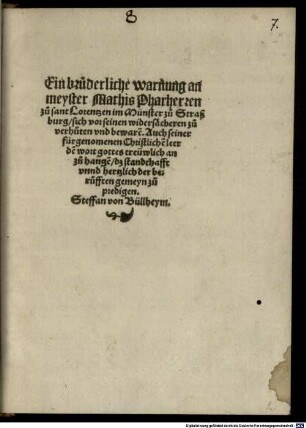 8
7.
Ein brůderliche warnung an
meyster Mathis Pfarherren
zů sant Lorentzen im Münster zů Straß
burg / sich vor seinen widersächeren zů
verhüten vnd bewarē. Auch seiner
fürgenomenen Christlichē leer
dē wort gottes treüwlich an
zů hangē / dz standthafft
vnnd hertzlich der be-
rüfften gemeyn zů
predigen.
Steffan von Büllheym.